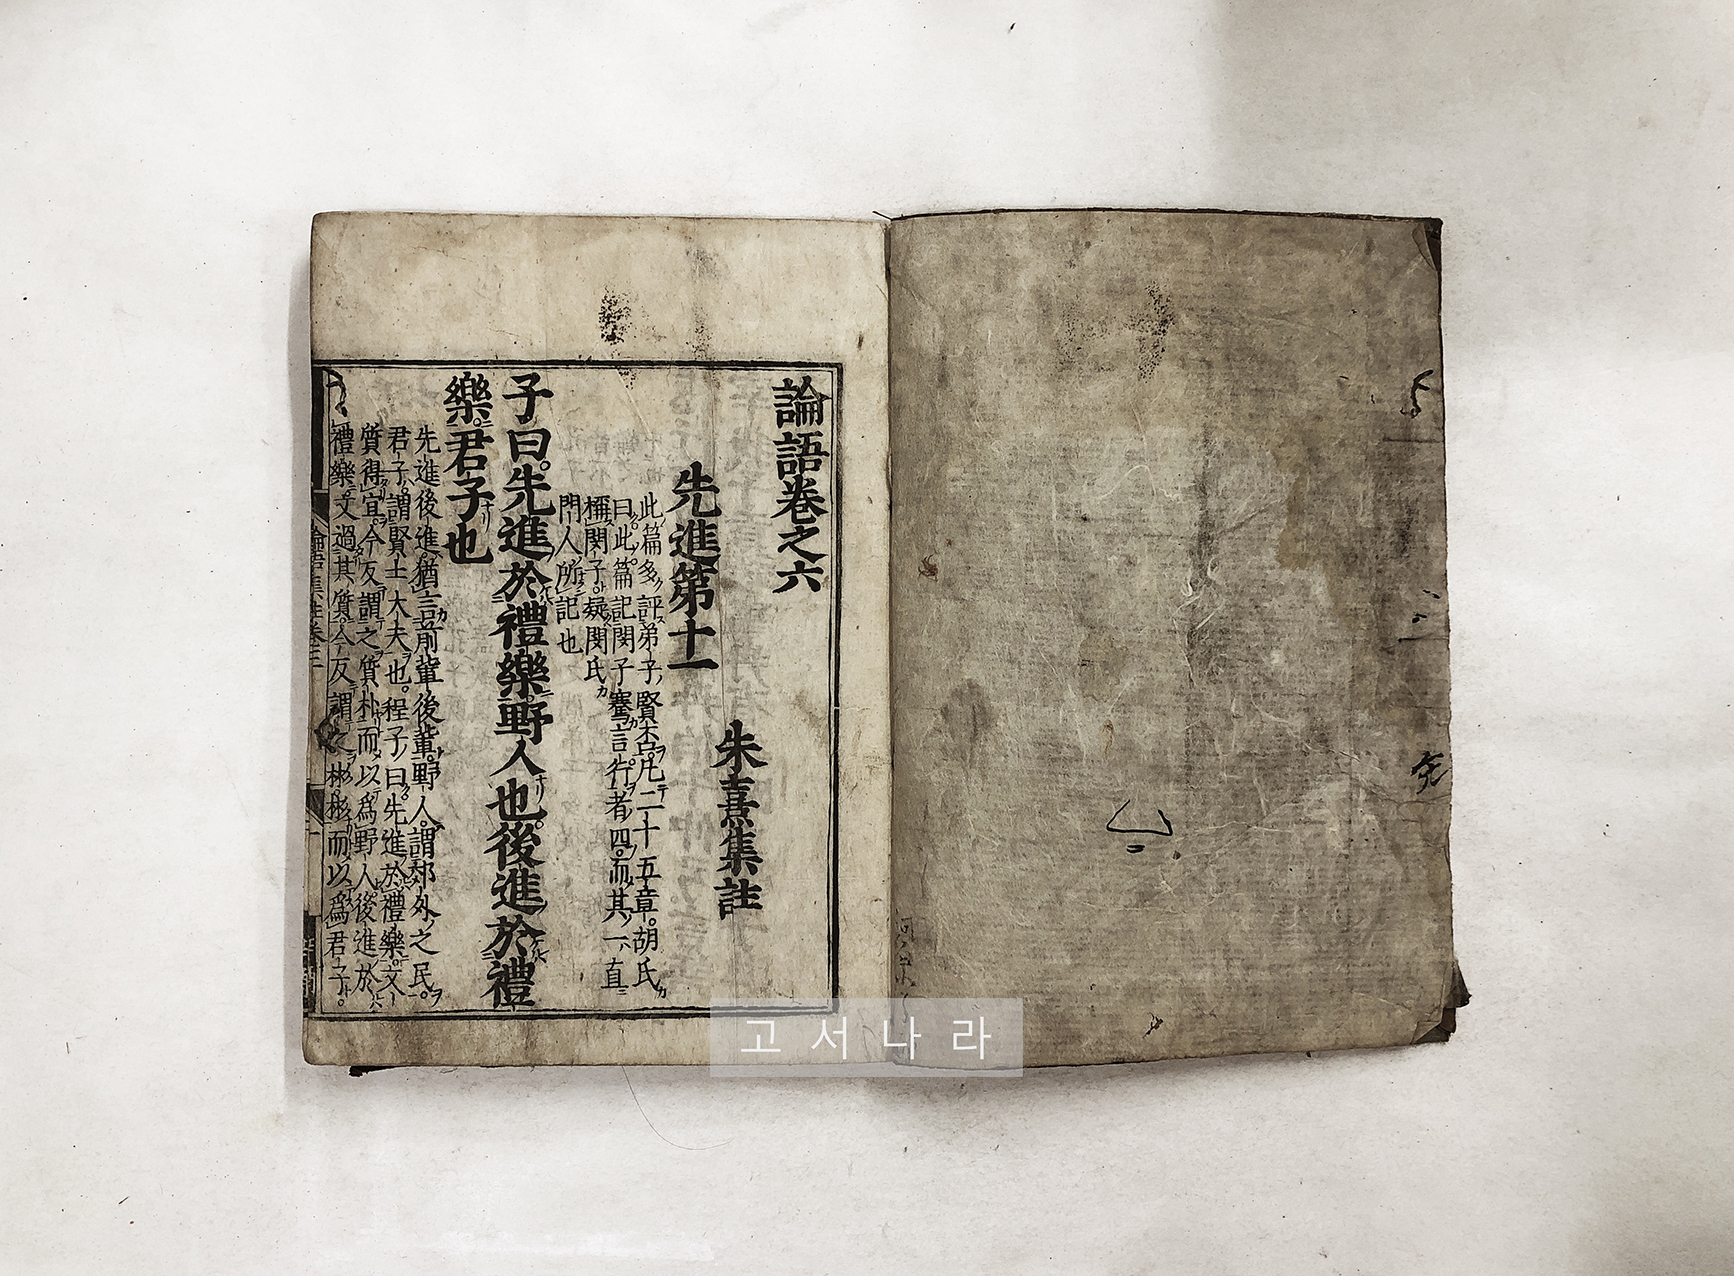 論語卷之六
朱熹集註
先進第十一
此篇多評弟子賢否凡二十五章胡氏
曰此篇記閔子騫言行者四而其一直
稱閔子疑閔氏
門人所記也
子曰先進於禮樂野人也後進於禮
樂君子也
先進後進猶言前輩後輩野人謂郊外之民
君子謂賢士大夫也程子曰先進於禮樂文
質得宜今反謂之質朴而以爲野人後進於
禮樂文過其質今反謂之彬彬而以爲君子
고서나라